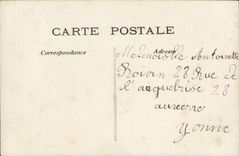 CARTE POSTALE
Correspondance
Adresse
Mademoiselle Antoinette
Boivin 28 Rue de
l'arquebuse 28
auxerre
Yonne